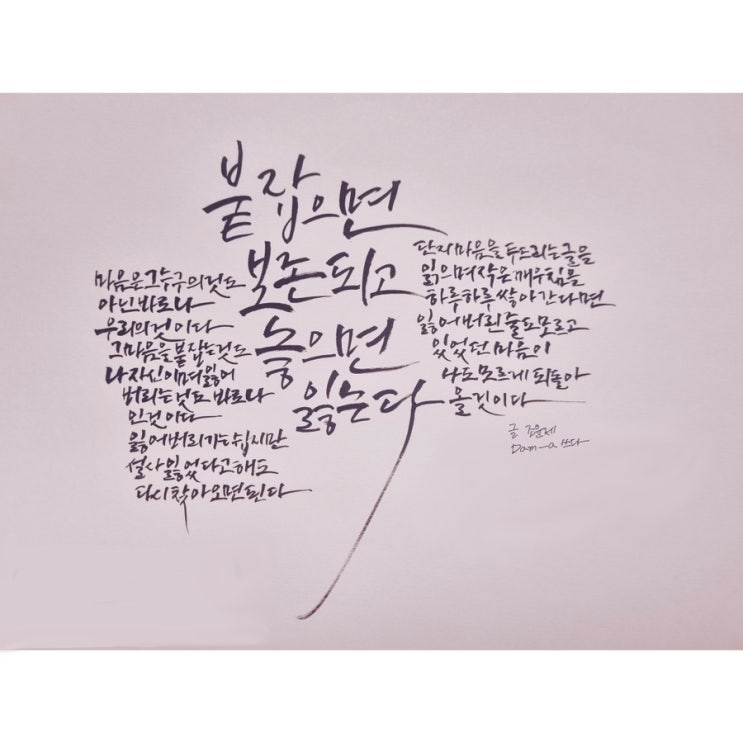 붙잡으면
보존되고
놓으면
잃는다
마음은 그 누구의 것도
아닌 바로 나
우리의 것이다
그 마음을 붙잡는 것도
나 자신이며 잃어
버리는 것도 바로 나
인 것이다
잃어버리기는 쉽지만
설사 잃었다고 해도
다시 찾아오면 된다
단지 마음을 두드리는 글을
읽으며 작은 깨우침을
하루하루 쌓아간다면
잃어버린 줄도 모르고
있었던 마음이
나도 모르게 되돌아
올 것이다
글 조윤제
Dam-a 쓰다